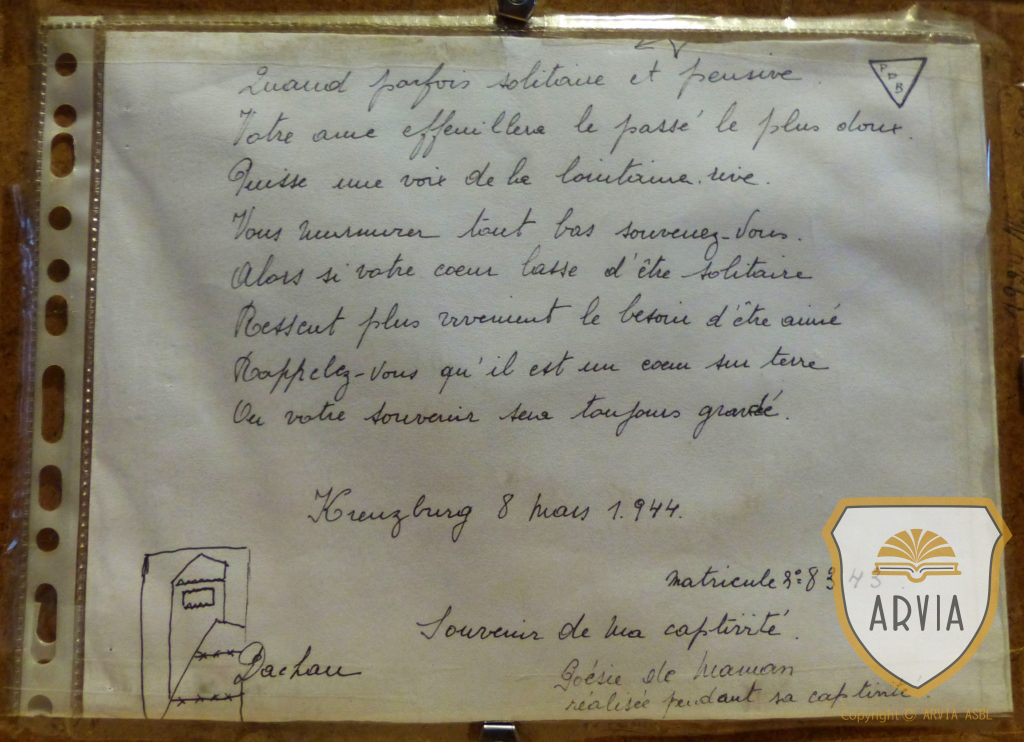 Quand parfois solitaire et pensive.
P D B
Votre ame effeuillera le passé le plus doux.
Puisse une voix de la lointaine rive.
Vous murmurer tout bas souvenez-vous.
Alors si votre coeur lasse d'être solitaire
Ressent plus vivement le besoin d'être aimé
Rappelez-vous qu'il est un coeur sur terre
Ou votre souvenir sera toujours gravé.
Kreuzburg 8 Mars 1.944.
matricule n°: 8 3 43
Souvenir de ma captivité.
Dachau
Poésie de Maman
réalisée pendant sa captivité.
ARVIA
Copyright © ARVIA ASBL